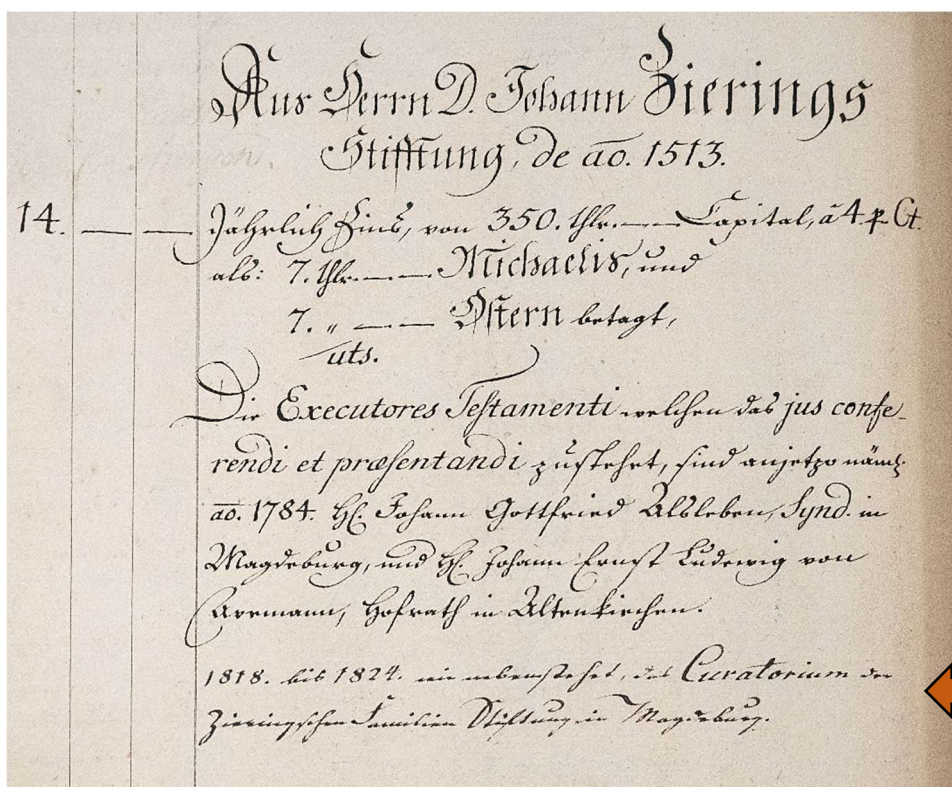 Aus Herrn D. Johann Zierings
Stifftung, de ao. 1513.
14. — — Jährlich Zins, von 350. thlr. — — Capital, â 4. p. Ct.
als: 7. thlr. — — Michaelis, und
7. „ — — Ostern betagt,
uts.
Die Executores Testamenti welchen das jus confe-
rendi et præsentandi zustehet, sind anjetzo näml.
ao. 1784. H. Johann Gottfried Alsleben, Synd. in
Magdeburg, und H. Johann Ernst Ludewig von
Avemann, Hofrath in Altenkirchen.
1818. bis 1824. wie nebenstehet, das Curatorium der
Zieringschen Familien Stiftung in Magdeburg.